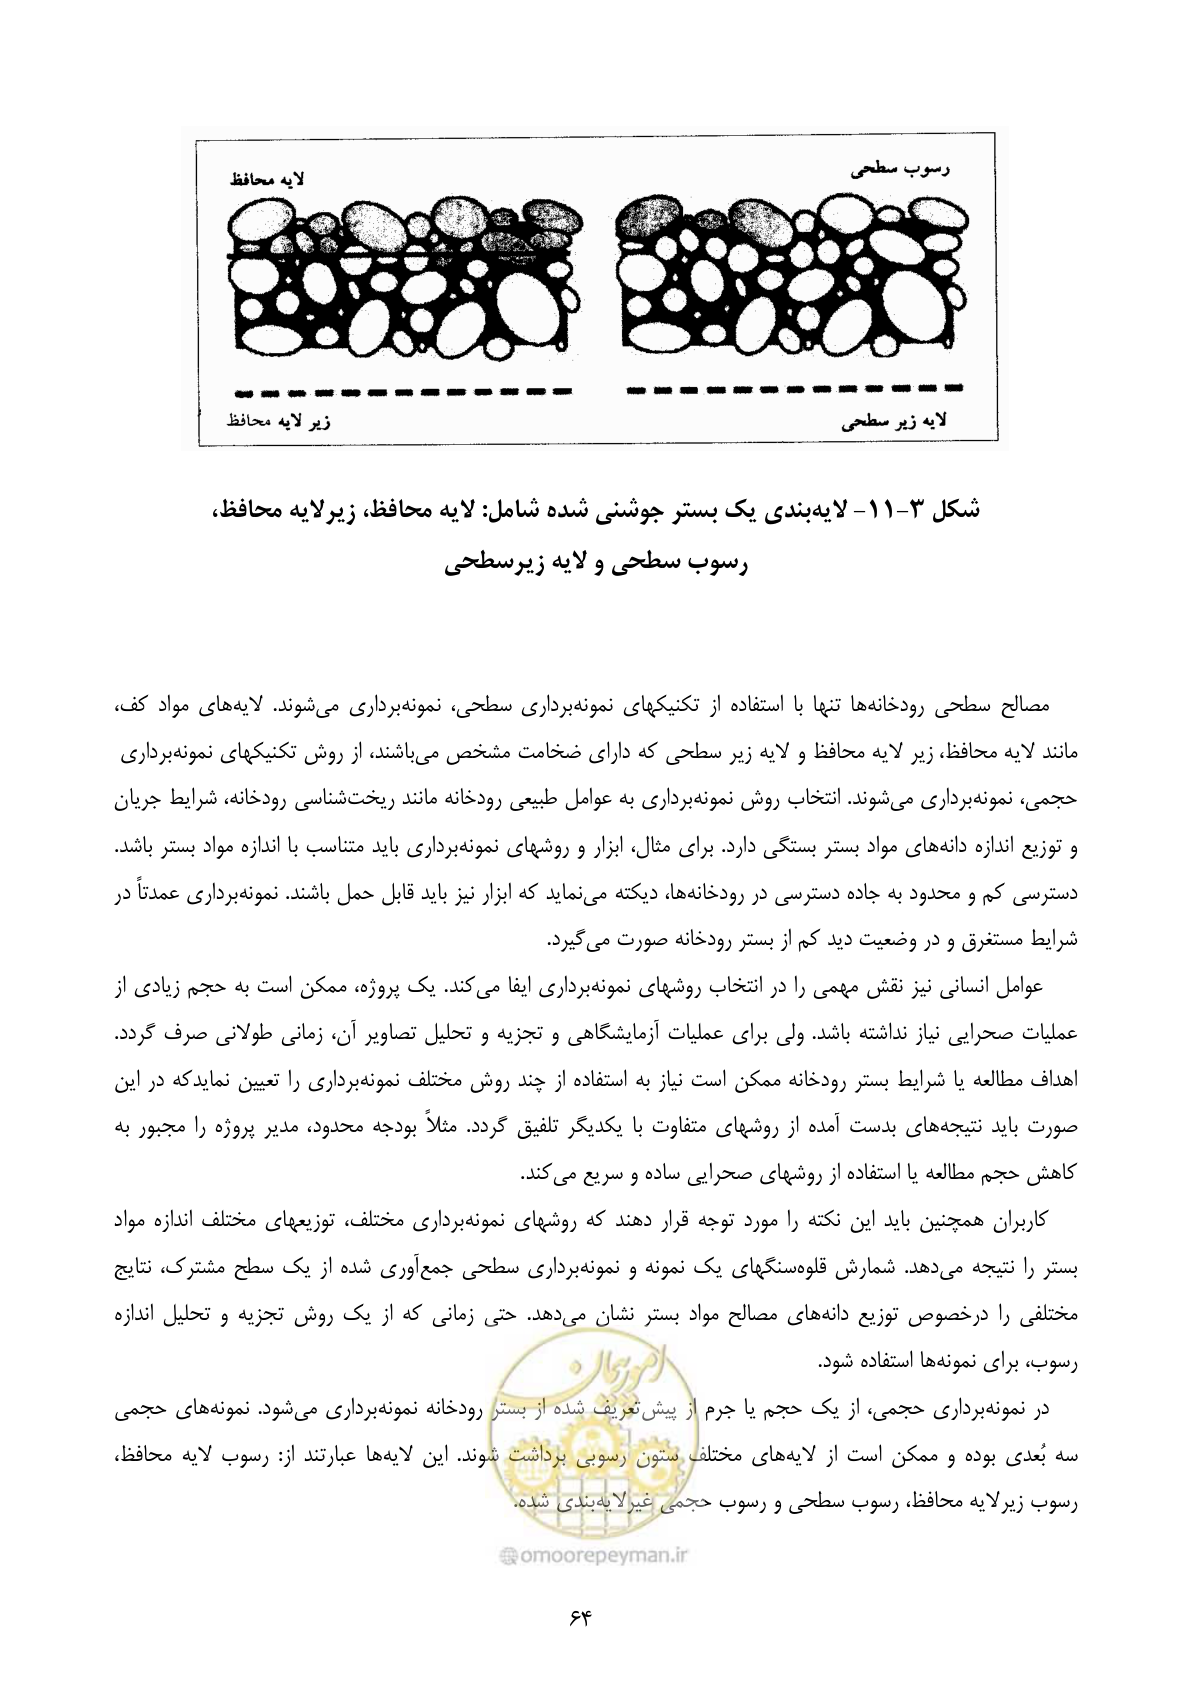 رسوب سطحی
لایه محافظ
لایه زیر سطحی
زیر لایه محافظ
شکل ۳-۱۱- لایه‌بندی یک بستر جوشنی شده شامل: لایه محافظ، زیرلایه محافظ،
رسوب سطحی و لایه زیرسطحی
مصالح سطحی رودخانه‌ها تنها با استفاده از تکنیکهای نمونه‌برداری سطحی، نمونه‌برداری می‌شوند. لایه‌های مواد کف،
مانند لایه محافظ، زیر لایه محافظ و لایه زیر سطحی که دارای ضخامت مشخص می‌باشند، از روش تکنیکهای نمونه‌برداری
حجمی، نمونه‌برداری می‌شوند. انتخاب روش نمونه‌برداری به عوامل طبیعی رودخانه مانند ریخت‌شناسی رودخانه، شرایط جریان
و توزیع اندازه دانه‌های مواد بستر بستگی دارد. برای مثال، ابزار و روشهای نمونه‌برداری باید متناسب با اندازه مواد بستر باشد.
دسترسی کم و محدود به جاده دسترسی در رودخانه‌ها، دیکته می‌نماید که ابزار نیز باید قابل حمل باشند. نمونه‌برداری عمدتاً در
شرایط مستغرق و در وضعیت دید کم از بستر رودخانه صورت می‌گیرد.
عوامل انسانی نیز نقش مهمی را در انتخاب روشهای نمونه‌برداری ایفا می‌کند. یک پروژه، ممکن است به حجم زیادی از
عملیات صحرایی نیاز نداشته باشد. ولی برای عملیات آزمایشگاهی و تجزیه و تحلیل تصاویر آن، زمانی طولانی صرف گردد.
اهداف مطالعه یا شرایط بستر رودخانه ممکن است نیاز به استفاده از چند روش مختلف نمونه‌برداری را تعیین نمایدکه در این
صورت باید نتیجه‌های بدست آمده از روشهای متفاوت با یکدیگر تلفیق گردد. مثلاً بودجه محدود، مدیر پروژه را مجبور به
کاهش حجم مطالعه یا استفاده از روشهای صحرایی ساده و سریع می‌کند.
کاربران همچنین باید این نکته را مورد توجه قرار دهند که روشهای نمونه‌برداری مختلف، توزیعهای مختلف اندازه مواد
بستر را نتیجه می‌دهد. شمارش قلوه‌سنگهای یک نمونه و نمونه‌برداری سطحی جمع‌آوری شده از یک سطح مشترک، نتایج
مختلفی را درخصوص توزیع دانه‌های مصالح مواد بستر نشان می‌دهد. حتی زمانی که از یک روش تجزیه و تحلیل اندازه
رسوب، برای نمونه‌ها استفاده شود.
در نمونه‌برداری حجمی، از یک حجم یا جرم از پیش‌تعریف شده از بستر رودخانه نمونه‌برداری می‌شود. نمونه‌های حجمی
سه بُعدی بوده و ممکن است از لایه‌های مختلف ستون رسوبی برداشت شوند. این لایه‌ها عبارتند از: رسوب لایه محافظ،
رسوب زیرلایه محافظ، رسوب سطحی و رسوب حجمی غیرلایه‌بندی شده.
امور پیمان
@omoorepeyman.ir
۶۴